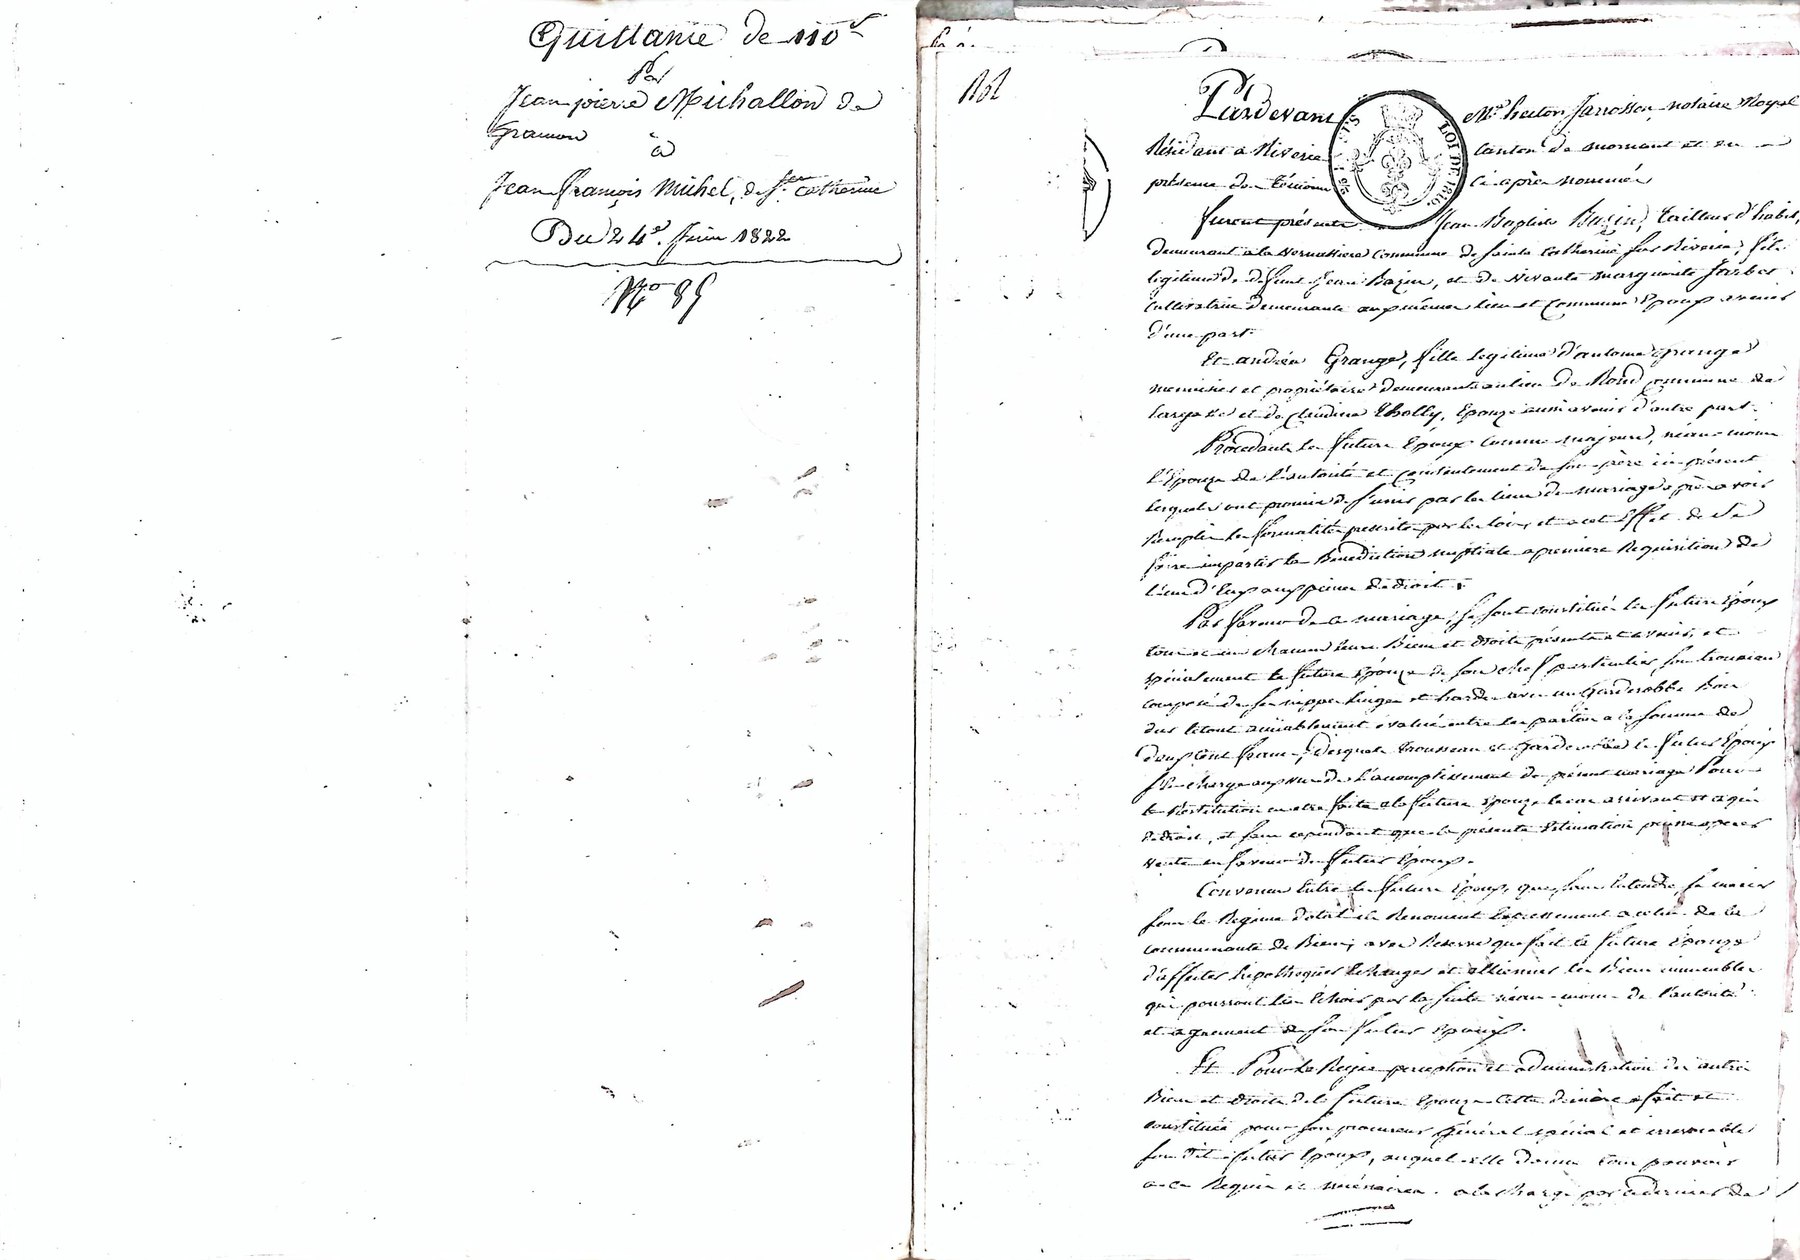 Quittance de 110f
Par
Jean pierre Michallon de
à
Jean françois Michel, de Ste catherine
Du 24e. Juin 1822
No 85
Pardevant Me Jarrosson, notaire Royal
Résidant a Riverie canton de mornant et en
présence des témoins ci après nommés
furent présents Jean Baptiste Bazin, tailleur d'habits,
demeurant a la commune de sainte catherine sur Riverie, fils
legitime de defunt Jean Bazin, et de vivante marguerite Jarbet
cultivatrice demeurante aux mêmes lieu et commune Epoux avenir
d'une part.
Et andrée Grange, fille legitime d'antoine Grange
menuisier et propriétaire demeurants au lieu de commune de
larajasse et de Claudine Tholly, Epouze aussi avenir d'autre part.
Procedants les futurs Epoux comme majeurs, néanmoins
l'Epouze de l'autorité et consentement de son père ici présent
lesquels ont promis de s'unir par les liens du mariage après avoir
Remplis les formalités prescrites par les lois, et a cet Effet de se
faire impartir la Bénédiction nuptiale a première Requisition de
l'un d'Eux aux peines de droit.
Par faveur de ce mariage, se sont constitués les futurs Epoux
tous et un chacun leurs Biens et droits présents et avenir, et
spécialement la future Epouze de son chef particulier, son trousseau
composé de ses nippes linges et hardes avec un Garderobbe Bois
dur le tout amiablement évalué entre les parties a la somme de
deux cent francs, desquels trousseau et Garderobbe le futur Epoux
se charge au vu de l'accomplissement du présent mariage Pour
la Restitution en etre faite a la future Epouze le cas arrivant et a qui
de droit, et sans cependant que la présente Estimation puisse operer
vente en faveur du futur Epoux.
Convenu Entre les futurs Epoux, que sans Entendre se marier
sous le Regime dotal ils Renoncent Expressement a celui de la
communauté de Biens, avec Reserve que fait la future Epouze
d'affecter hipothequer Echanger et alliener les Biens immeubles
qui pourront lui Echoir par la suite néanmoins de l'autorité
et agrement de son futur Epoux.
Et Pour la Regie perception et administration des autres
Biens et droits de la future Epouze cette dernière a fait et
constitué pour son procureur Général spécial et irrevocable
son dit futur Epoux, auquel elle donne tous pouvoirs
a ce Requis et nécéssaires. a la charge par ce dernier de